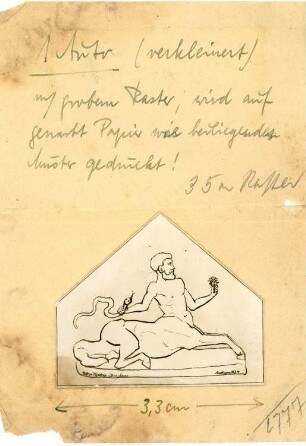 1 Auto (verkleinert)
mit grobem Raster, wird auf
genarbt Papier wie beiliegendes
Muster gedruckt!
35er Raster
3,3 cm
2777